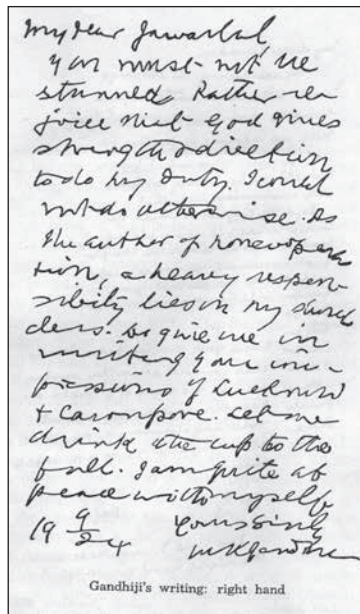 My dear Jawaharlal,
You must not be
stunned. Rather re
joice that God gives
strength & direction
to do my duty. I could
not do otherwise. As
the author of noncoopera
tion, a heavy respon
sibility lies on my shoul
ders. Do give me in
writing your im-
pressions of Lucknow
& Cawnpore. Let me
drink the cup to the
full. I am quite at
peace with myself.
Yours sincly
19 9/24 MKGandhi
Gandhiji's writing: right hand